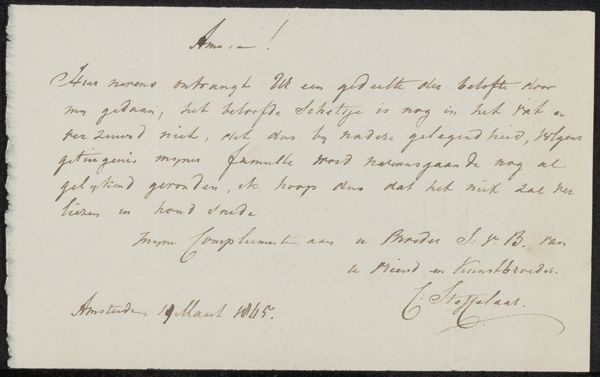 Amice!
Hier nevens ontvangt UE een gedeelte der belofte door
mij gedaan, het beloofde Schetsje is nog in het vat en
verzuurd niet, dit dus bij nadere gelegenheid, volgens
getuigenis mijner familie word nevensgaande nog al
gelijkend gevonden, ik hoop dus dat het niet zal ver
liezen in
mijne Complimenten aan u Broeder S. v. B. van
u vriend en Kunstbroeder.
C. Steffelaar.
Amsterdam 19 Maart 1845.